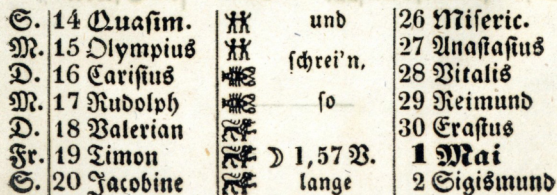 S. 14 Quasim. und 26 Miseric.
M. 15 Olympius 27 Anastasius
schrei'n,
D. 16 Carisius 28 Vitalis
M. 17 Rudolph so 29 Reimund
D. 18 Valerian 30 Erastus
Fr. 19 Timon ☽ 1,57 V. 1 Mai
S. 20 Jacobine lange 2 Sigismund